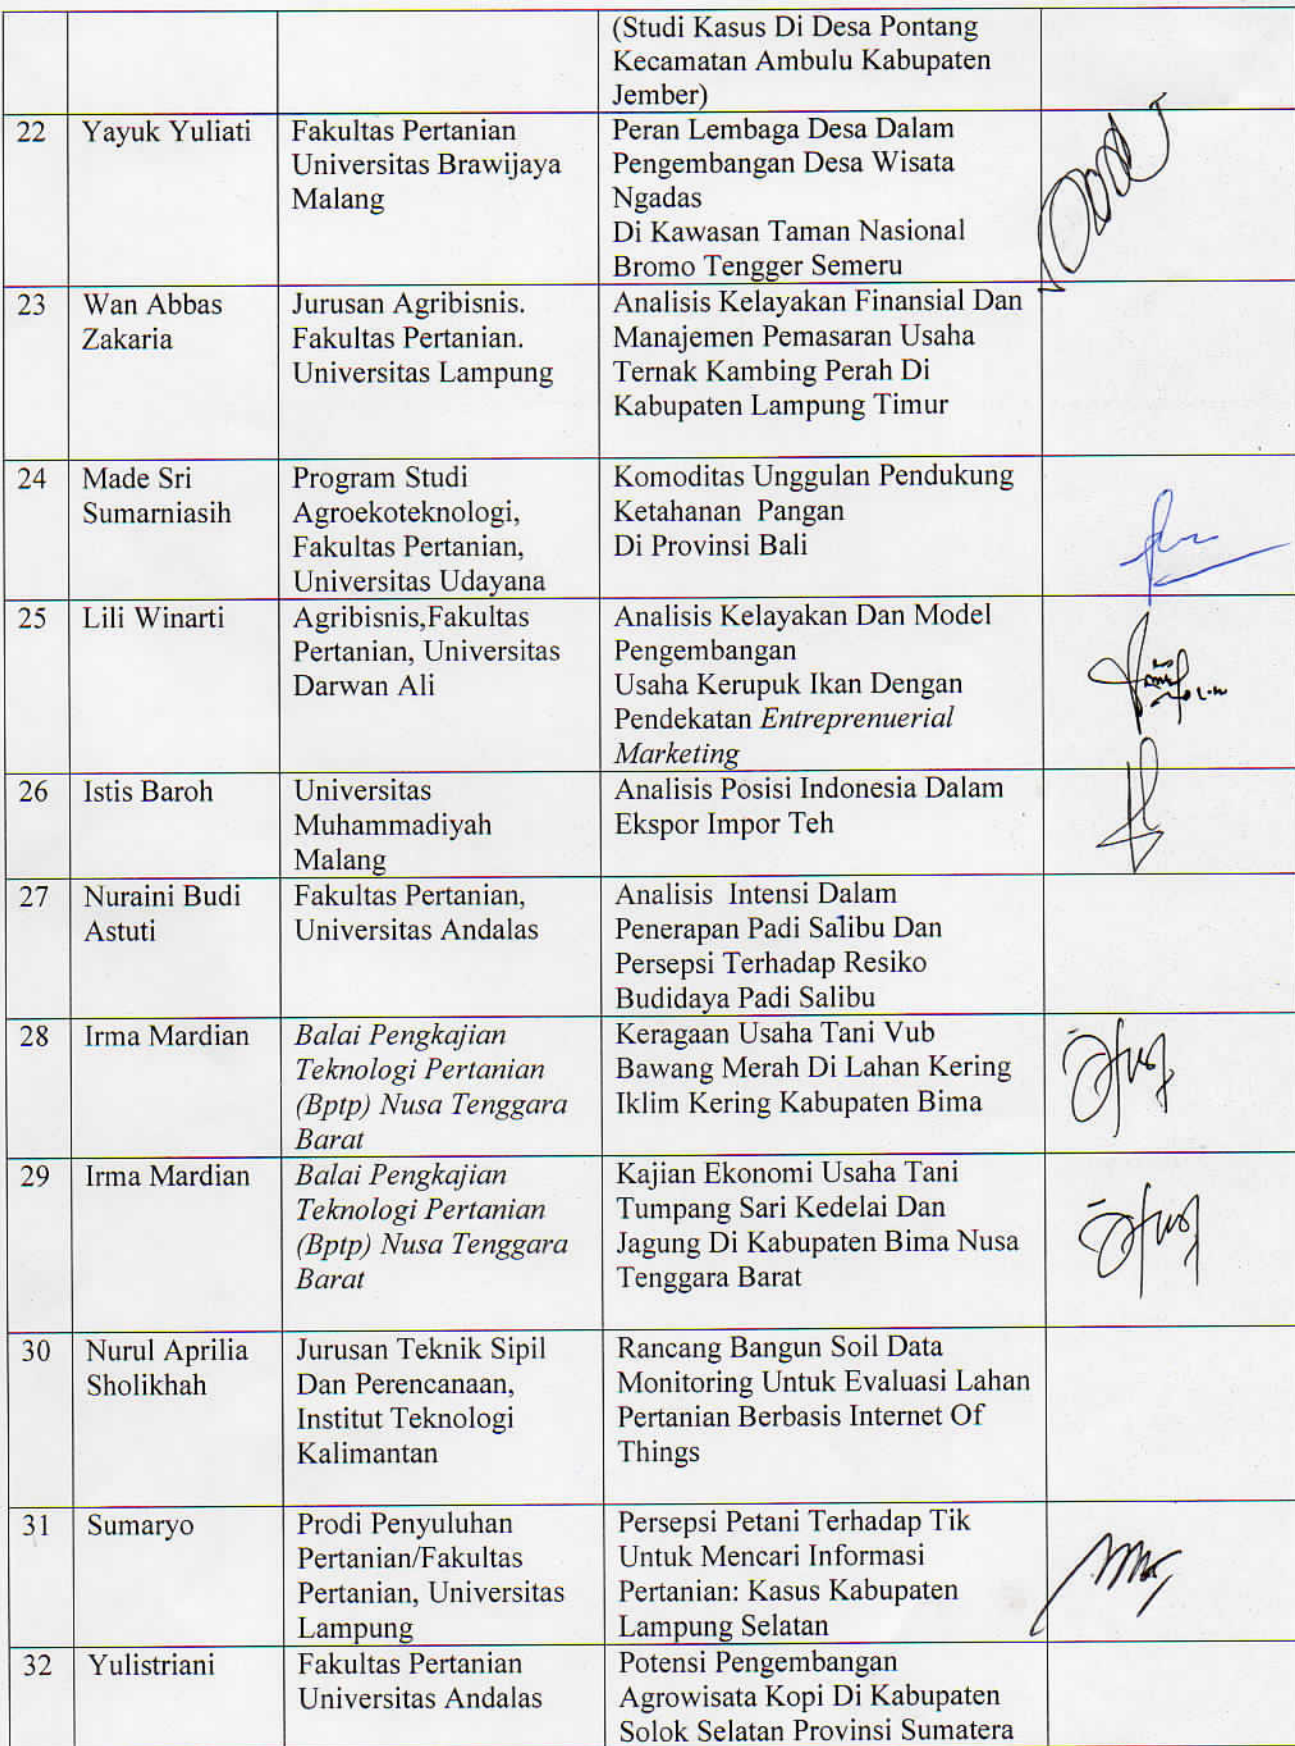 (Studi Kasus Di Desa Pontang
Kecamatan Ambulu Kabupaten
Jember)
22
Yayuk Yuliati
Fakultas Pertanian
Universitas Brawijaya
Malang
Peran Lembaga Desa Dalam
Pengembangan Desa Wisata
Ngadas
Di Kawasan Taman Nasional
Bromo Tengger Semeru
23
Wan Abbas
Zakaria
Jurusan Agribisnis.
Fakultas Pertanian.
Universitas Lampung
Analisis Kelayakan Finansial Dan
Manajemen Pemasaran Usaha
Ternak Kambing Perah Di
Kabupaten Lampung Timur
24
Made Sri
Sumarniasih
Program Studi
Agroekoteknologi,
Fakultas Pertanian,
Universitas Udayana
Komoditas Unggulan Pendukung
Ketahanan Pangan
Di Provinsi Bali
25
Lili Winarti
Agribisnis,Fakultas
Pertanian, Universitas
Darwan Ali
Analisis Kelayakan Dan Model
Pengembangan
Usaha Kerupuk Ikan Dengan
Pendekatan Entreprenuerial
Marketing
26
Istis Baroh
Universitas
Muhammadiyah
Malang
Analisis Posisi Indonesia Dalam
Ekspor Impor Teh
27
Nuraini Budi
Astuti
Fakultas Pertanian,
Universitas Andalas
Analisis Intensi Dalam
Penerapan Padi Salibu Dan
Persepsi Terhadap Resiko
Budidaya Padi Salibu
28
Irma Mardian
Balai Pengkajian
Teknologi Pertanian
(Bptp) Nusa Tenggara
Barat
Keragaan Usaha Tani Vub
Bawang Merah Di Lahan Kering
Iklim Kering Kabupaten Bima
29
Irma Mardian
Balai Pengkajian
Teknologi Pertanian
(Bptp) Nusa Tenggara
Barat
Kajian Ekonomi Usaha Tani
Tumpang Sari Kedelai Dan
Jagung Di Kabupaten Bima Nusa
Tenggara Barat
30
Nurul Aprilia
Sholikhah
Jurusan Teknik Sipil
Dan Perencanaan,
Institut Teknologi
Kalimantan
Rancang Bangun Soil Data
Monitoring Untuk Evaluasi Lahan
Pertanian Berbasis Internet Of
Things
31
Sumaryo
Prodi Penyuluhan
Pertanian/Fakultas
Pertanian, Universitas
Lampung
Persepsi Petani Terhadap Tik
Untuk Mencari Informasi
Pertanian: Kasus Kabupaten
Lampung Selatan
32
Yulistriani
Fakultas Pertanian
Universitas Andalas
Potensi Pengembangan
Agrowisata Kopi Di Kabupaten
Solok Selatan Provinsi Sumatera